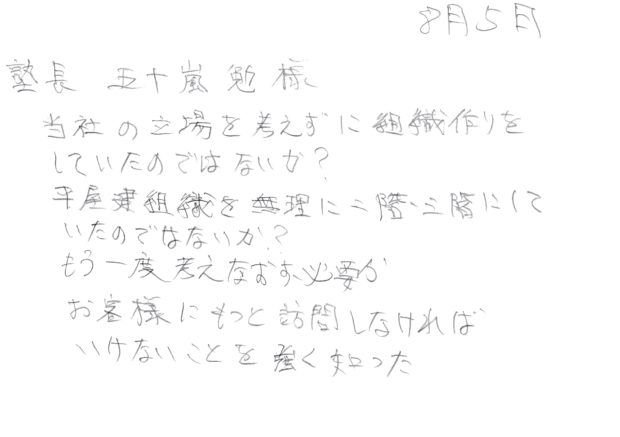 8月5日
塾長 五十嵐勉様
当社の立場を考えずに組織作りを
していたのではないか?
平屋建組織を無理に二階・三階にして
いたのではないか?
もう一度考えなおす、必要が
お客様にもっと訪問しなければ
いけないことを強く知った